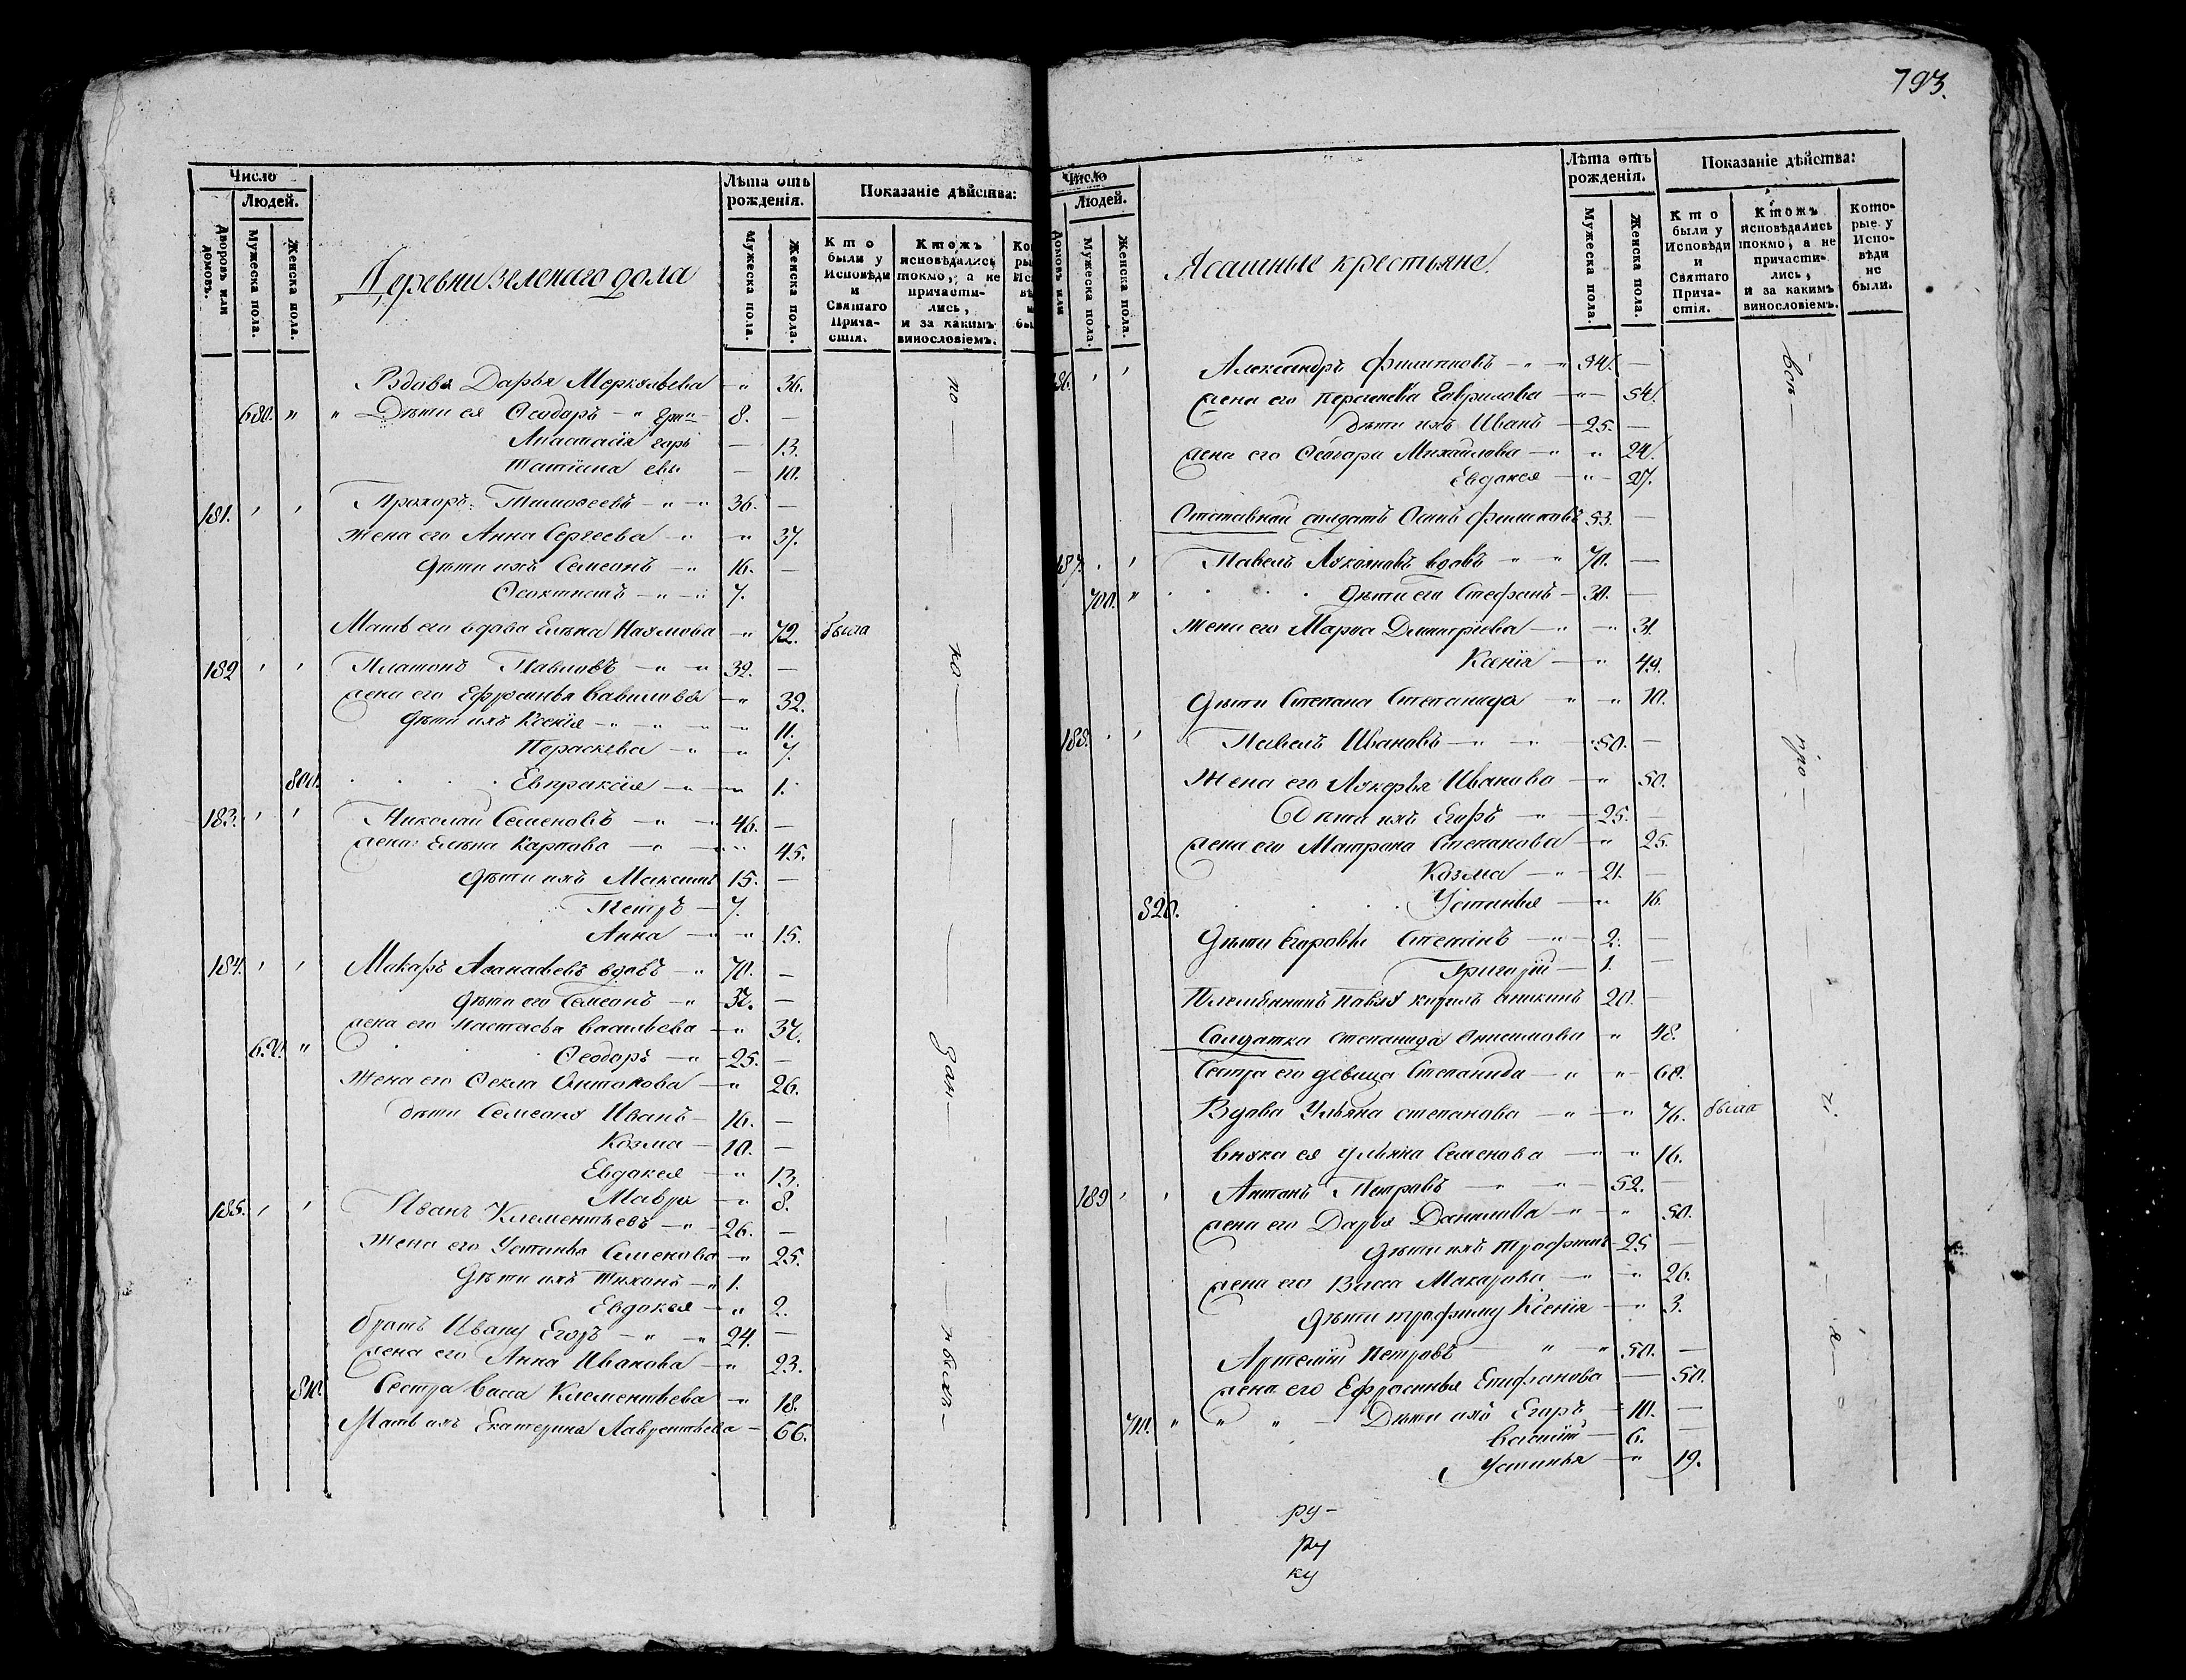 793.
Число
Людей.
Дворовъ или домовъ.
Мужеска пола.
Женска пола.
Деревни зеленаго дола
Лѣта отъ рожденія.
Мужеска пола.
Женска пола.
Показаніе дѣйства:
Кто были у Исповѣди и Святаго Прича-стія.
Ктожъ исповѣдались токмо, а не причасти-лись, и за какимъ винословіемъ.
Вдова Дарья Меркульева - " 36.
680. " " Дѣти ея Ѳеодоръ - " 8. —
Анастасія — 13.
Татіана — 10.
181. ' ' Прохоръ Тимоѳеевъ - " - " 36. —
Жена его Анна Сергеева - " " 37.
Дѣти ихъ Семеонъ - " 16. —
Ѳеоктистъ - " - " 7.
Мать его вдова Елена Наумова - " 72. была
182 ' ' Платонъ Павловъ - " - " 32. —
жена его Ефросинья Вавилова - " 32.
Дѣти ихъ Ксенія - " - " - " 11.
Параскева - " - " 7.
800. Евпраксія - " - " 1.
183. ' ' Николай Семеновъ - " - " 46. —
жена Елена Карпова - " - " 45.
Дѣти ихъ Максимъ 15. —
Петръ — 7.
Анна - " - " 15.
184. ' ' Макаръ Аѳанасьевъ вдовъ - " 70. —
Дѣти его Семеонъ - " 37. —
жена его Настасья Васильева - " 37.
690. " Ѳеодоръ - " 25. —
Жена его Ѳекла Антонова - " 26.
дѣти Семеона Иванъ - 16. —
Козма - 10. —
Евдокея - " 13.
Мавра - " 8.
185. ' ' Иванъ Клементьевъ - " - 26. —
Жена его Устинья Семенова - " 25.
Дѣти ихъ Тихонъ - " 1.
Евдокея - " 2.
братъ Ивану Егоръ - " - " 24. —
жена его Анна Иванова - " 23.
810. Сестра Васса Клементьева - " 18.
Мать ихъ Екатерина Лаврентьева - 66.
Число
Людей.
Домовъ или
Мужеска пола.
Женска пола.
Ясашные крестьяне.
Лѣта отъ рожденія.
Мужеска пола.
Женска пола.
Показаніе дѣйства:
Кто были у Исповѣди и Святаго Прича-стія.
Ктожъ исповѣдались токмо, а не причасти-лись, и за какимъ винословіемъ.
Кото-рые у Испо-вѣди не были.
186. ' ' Александръ Филиповъ - " - " 54. —
жена его Гаврилова - " - 54.
дѣти ихъ Иванъ — 25. —
жена его Ѳеодора Михайлова - " " 24.
Евдокея - " - 27.
Отставной солдатъ Осипъ Филиповъ 53. —
187. ' ' Павелъ Лукояновъ вдовъ - " - " 70. —
700. " Дѣти его Стефанъ - 30. —
Жена его Марѳа Димитріева - " - " 31.
Ксенія - " 49.
Дѣти Степана Степанида - " - " 10.
188. ' ' Павелъ Ивановъ - " - " 50. —
Жена его Лукерья Иванова - " 50.
Дѣти ихъ Егоръ - " - 25. —
жена его Матрона Степанова - " 25.
Козма - " - 21. —
820. Устинья - " 16.
Дѣти Егоровы - " - 2. —
Григорій - 1. —
Племянникъ Павлу 20. —
Солдатка степанида Анисимова " 48.
Сестра его девица Степанида - " " - 60.
Вдова Ульяна степанова - " - " 76. была
внука ея Ульяна Семенова - " - " 16.
189 ' ' Антонъ Петровъ - " - " - 52. —
жена его Дарья Данилова - " - " 50.
Дѣти ихъ Трофимъ - 25 —
жена его Васса Макарова - " - " 26.
Дѣти трофиму Ксенія - " 3.
Артемій Петровъ " - " 50. —
жена его Ефросинья Епифанова — 50.
710. " " " - Дѣти ихъ Егоръ - 10. —
Василій - 6. —
Устинья - " 19.
ру-
ру
ку